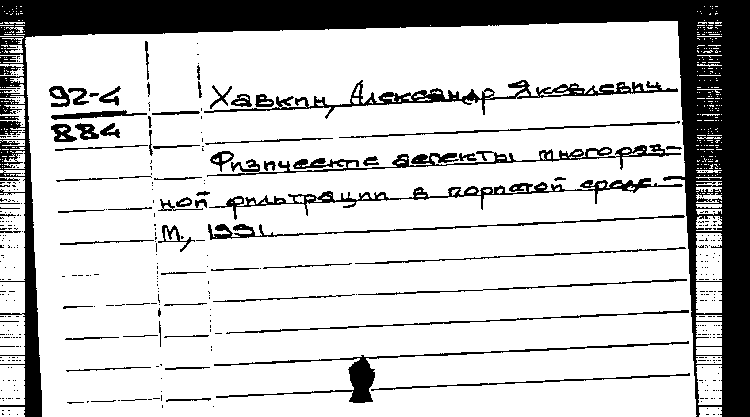 92-4
884
Хавкин, Александр Яковлевич.
Физические аспекты многофаз-
ной фильтрации в пористой среде. –
М., 1991.